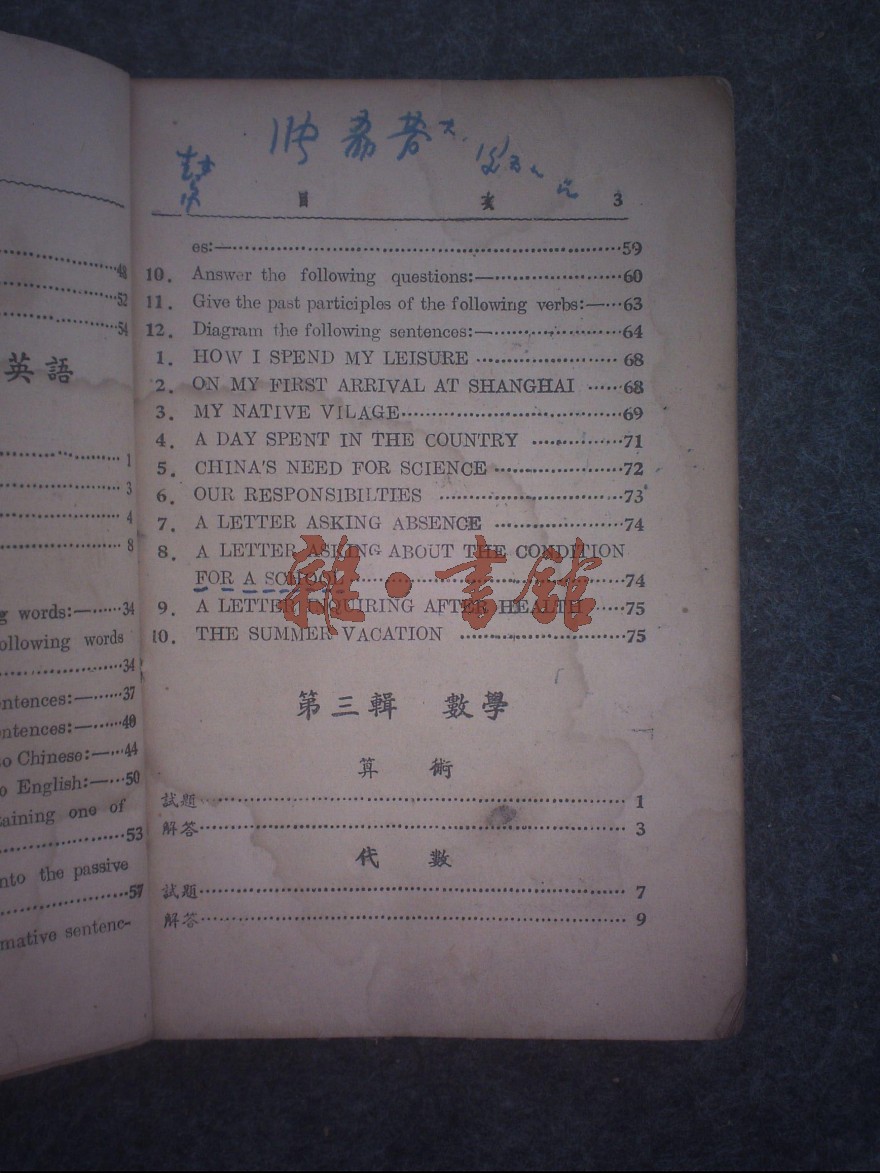 48
52
54
英語
1
3
4
8
g words:—······34
ollowing words
···34
ntences:—······37
ntences:—······40
o Chinese:—···44
o English:—···50
aining one of
···53
nto the passive
···57
mative sentenc-
目 次 3
es:—···59
10. Answer the following questions:—···60
11. Give the past participles of the following verbs:—···63
12. Diagram the following sentences:—···64
1. HOW I SPEND MY LEISURE ··· 68
2. ON MY FIRST ARRIVAL AT SHANGHAI ······68
3. MY NATIVE VILAGE···69
4. A DAY SPENT IN THE COUNTRY ···71
5. CHINA'S NEED FOR SCIENCE ···72
6. OUR RESPONSIBILTIES ···73
7. A LETTER ASKING ABSENCE ···74
8. A LETTER ASKING ABOUT THE CONDITION
FOR A SCHOOL ···74
9. A LETTER INQUIRING AFTER HEALTH ···75
10. THE SUMMER VACATION ···75
雜·書館
第三輯 數學
算 術
試題··· 1
解答··· 3
代 數
試題··· 7
解答··· 9